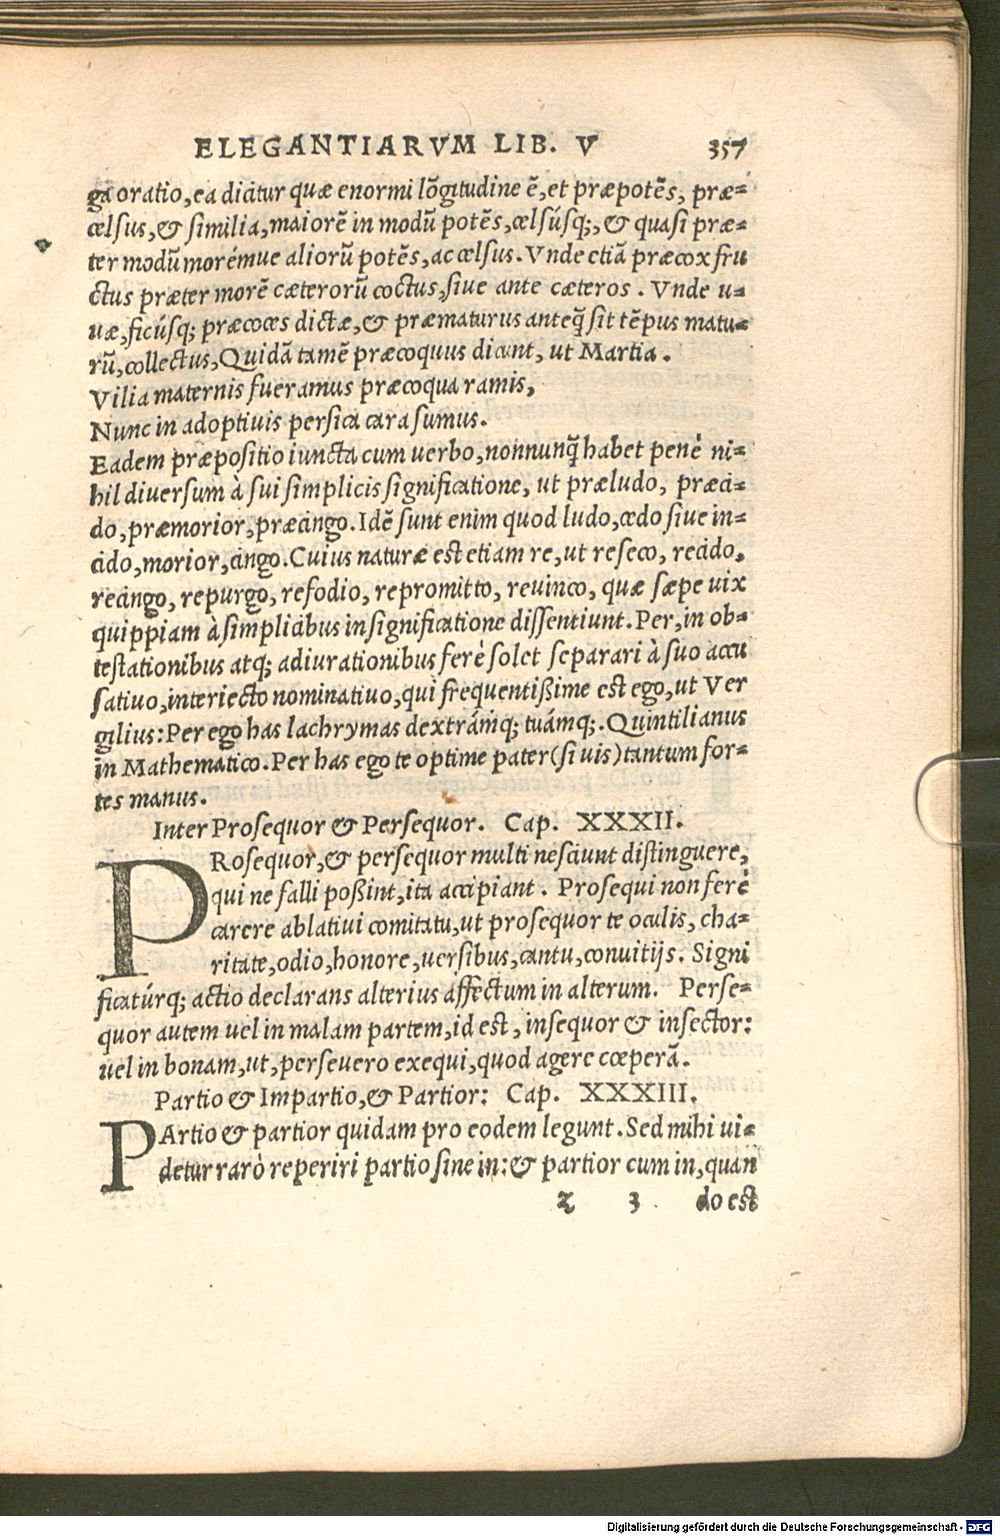 ELEGANTIARVM LIB. V 357
ga oratio, ea dicitur quæ enormi lōgitudine ē, et præpotēs, præ-
celsus, & similia, maiorē in modū potēs, celsúsq;, & quasi præ-
ter modū morémue aliorū potēs, ac celsus. Vnde etiā præcox fru
ctus præter morē cæterorū coctus, siue ante cæteros. Vnde u-
uæ, ficúsq; præcoces dictæ, & præmaturus anteq̃ sit tēpus matu-
rū, collectus, Quidā tamē præcoquus dicunt, ut Martia.
Vilia maternis fueramus præcoqua ramis,
Nunc in adoptiuis persica cara sumus.
Eadem præpositio iuncta cum uerbo, nonnunq̃ habet penè ni-
hil diuersum à sui simplicis significatione, ut præludo, præci-
do, præmorior, præcingo. Idē sunt enim quod ludo, cædo siue in-
cido, morior, cingo. Cuius naturæ est etiam re, ut reseco, recido,
recingo, repurgo, refodio, repromitto, reuinco, quæ sæpe uix
quippiam à simplicibus in significatione dissentiunt. Per, in ob-
testationibus atq; adiurationibus ferè solet separari à suo accu
satiuo, interiecto nominatiuo, qui frequentißime est ego, ut Ver
gilius: Per ego has lachrymas dextrámq; tuámq;. Quintilianus
in Mathematico. Per has ego te optime pater (si uis) tantum for-
tes manus.
Inter Prosequor & Persequor. Cap. XXXII.
PRosequor, & persequor multi nesciunt distinguere,
qui ne falli poßint, ita accipiant. Prosequi non ferè
carere ablatiui comitatu, ut prosequor te oculis, cha-
ritate, odio, honore, uersibus, cantu, conuitijs. Signi
ficatúrq; actio declarans alterius affectum in alterum. Perse-
quor autem uel in malam partem, id est, insequor & insector:
uel in bonam, ut, perseuero exequi, quod agere cœperā.
Partio & Impartio, & Partior: Cap. XXXIII.
PArtio & partior quidam pro eodem legunt. Sed mihi ui-
detur rarò reperiri partio sine in: & partior cum in, quan
z 3 do est
Digitalisierung gefördert durch die Deutsche Forschungsgemeinschaft - DFG